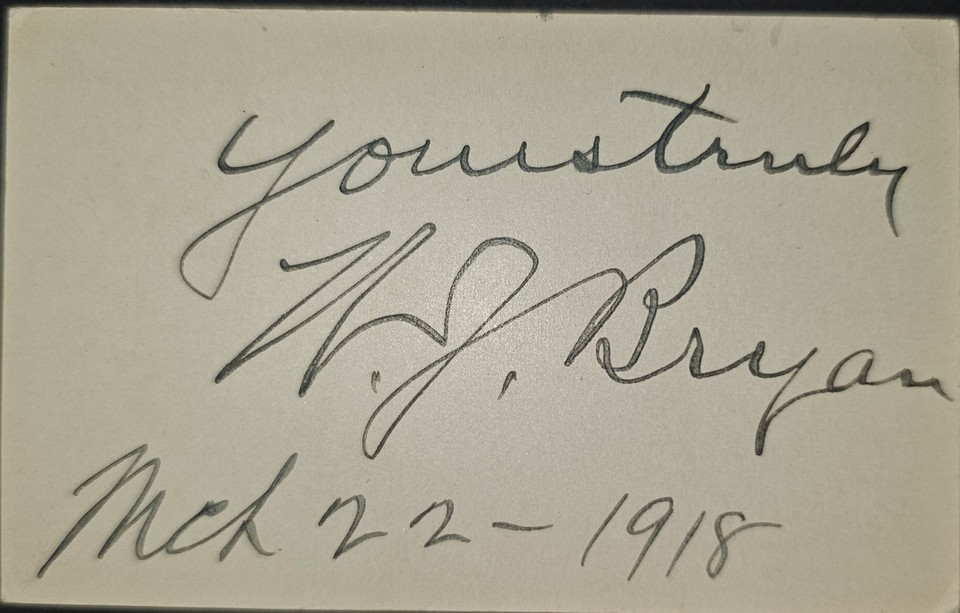 Yours truly
W. J. Bryan
Mch 22 - 1918